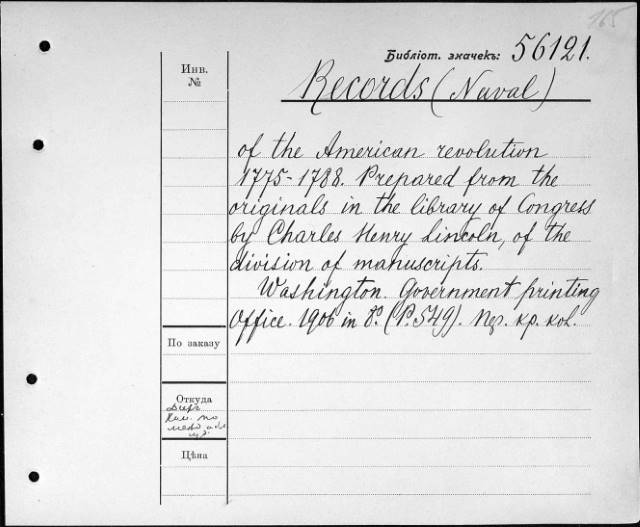 165
Библіот. значекъ: 56121.
Инв.
№
Records (Naval)
of the American revolution
1775-1788. Prepared from the
originals in the library of Congress
by Charles Henry Lincoln, of the
division of manuscripts.
Washington. Government printing
Office. 1906 in 8º. (P. 549). пер. кр. кол.
По заказу
Откуда
Цѣна